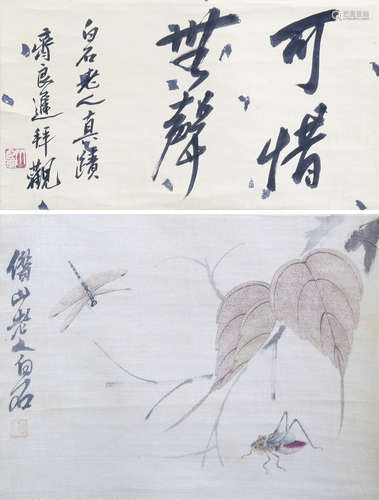 可惜
無聲
白石老人真蹟
齊良進拜觀
借山老人白石